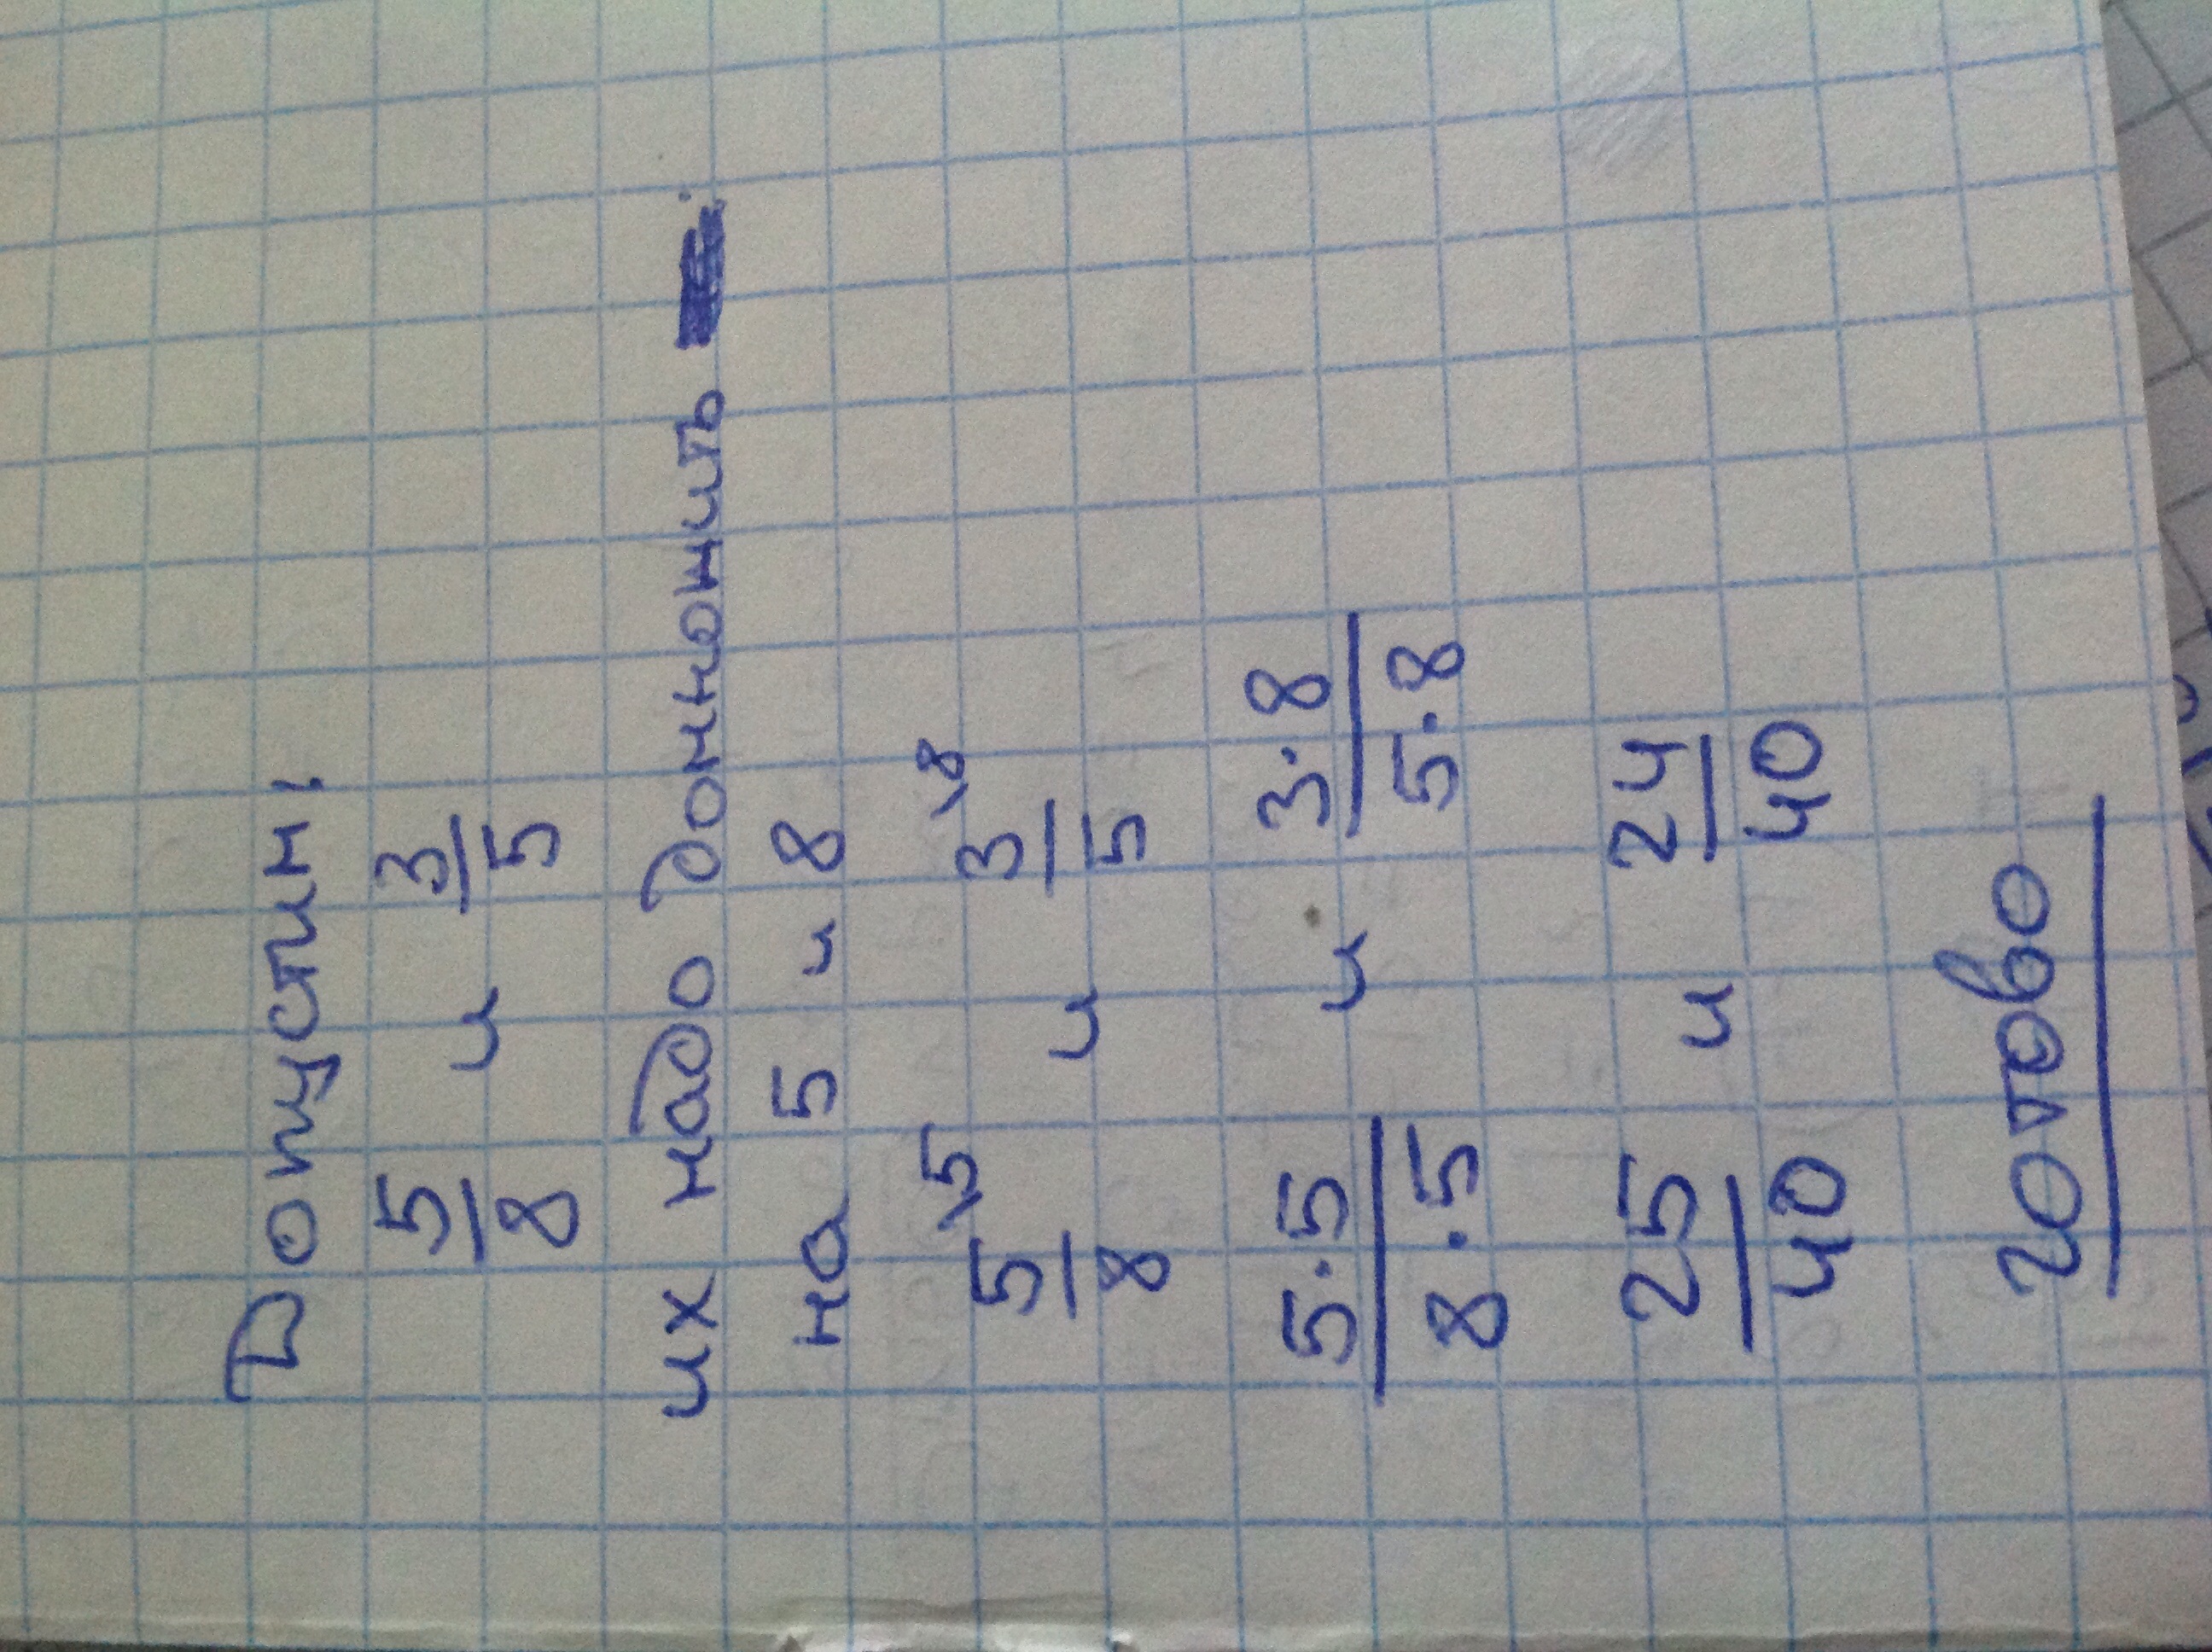 Допустим:
5/8 и 3/5
их надо домножить
на 5 и 8
5/8 \5 и 3/5 \8
5·5/8·5 и 3·8/5·8
25/40 и 24/40
готово